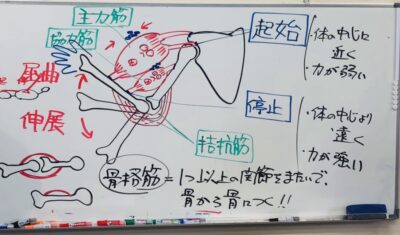 主力筋
協力筋
屈曲
伸展
拮抗筋
起始
・体の中心に
近く
・力が弱い
停止
・体の中心より
遠く
・力が強い
骨格筋=1つ以上の関節をまたいで、
骨から骨につく!!